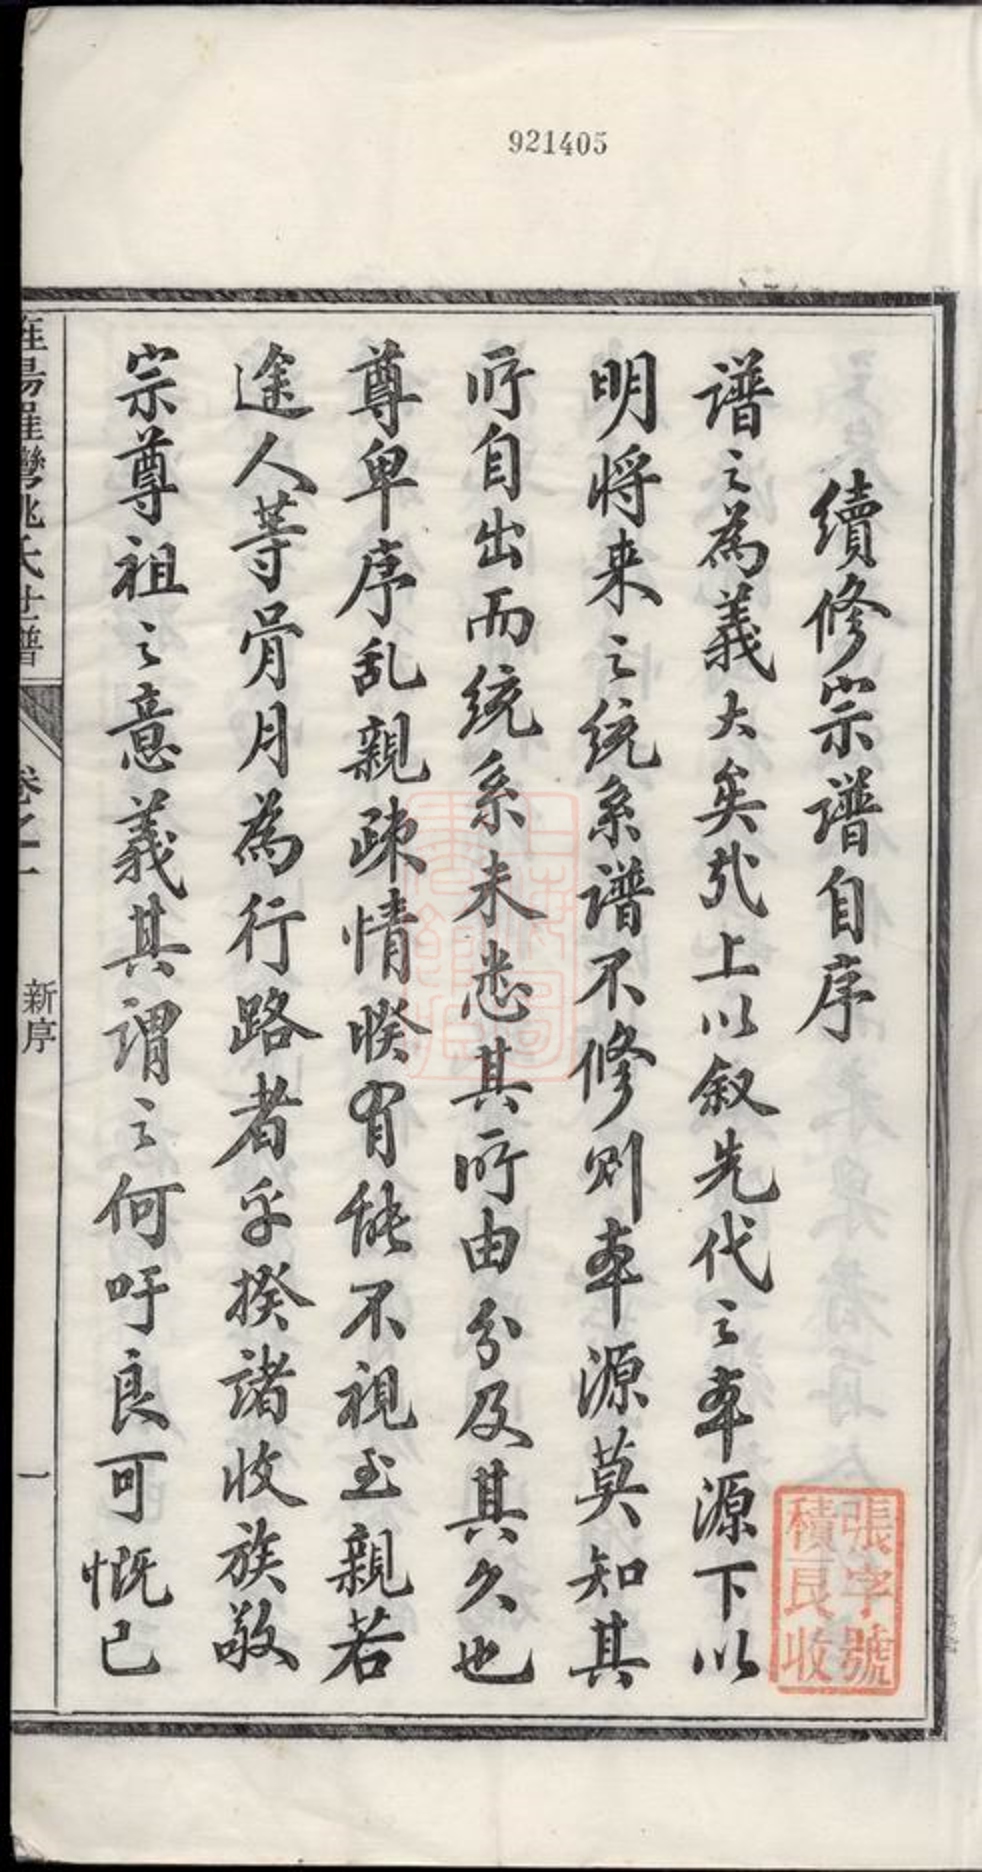 921405
續修宗譜自序
譜之為義大矣哉上以叙先代之本源下以
明将来之统系譜不修则本源莫知其
所自出而统系未悉其所由分及其久也
尊卑序乱親疎情暌有能不視至親若
途人等骨月為行路者乎揆諸收族敬
宗尊祖之意義其謂之何吁良可慨已
張字號
積艮收
姚氏世譜
卷之一
新序
一